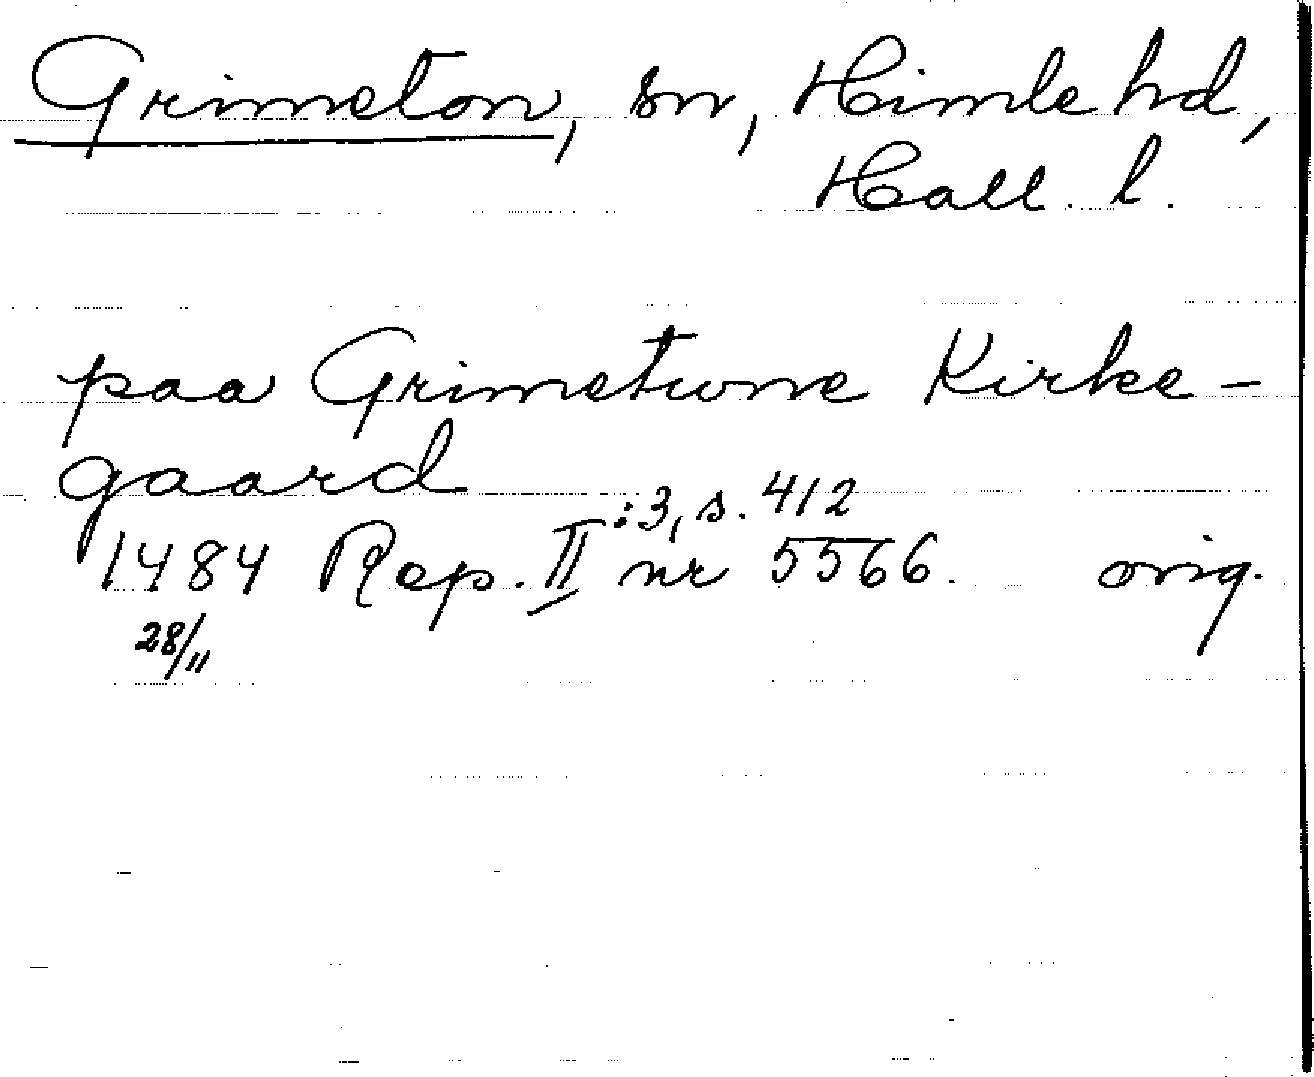 Grimeton, sn, Himle hd,
Hall. l.
paa Grimetwne Kirke-
gaard
:3, s. 412
1484 Rep. II nr 5566. orig.
28/11